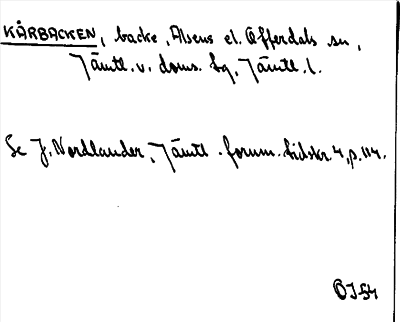 KÅRBACKEN, backe, Alsens el. Offerdals sn,
Jämtl. v. doms. lg, Jämtl. l.
Se J. Nordlander, Jämtl. fornm. tidskr. 4, p. 114.
ÖJ 54